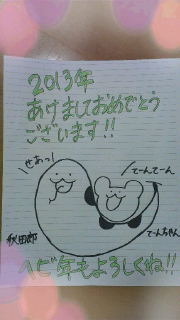 2013年
あけましておめでとう
ございます!!
せあっ!
てーんてーん
秋田郎
てーんちゃん
ヘビ年もよろしくね!!